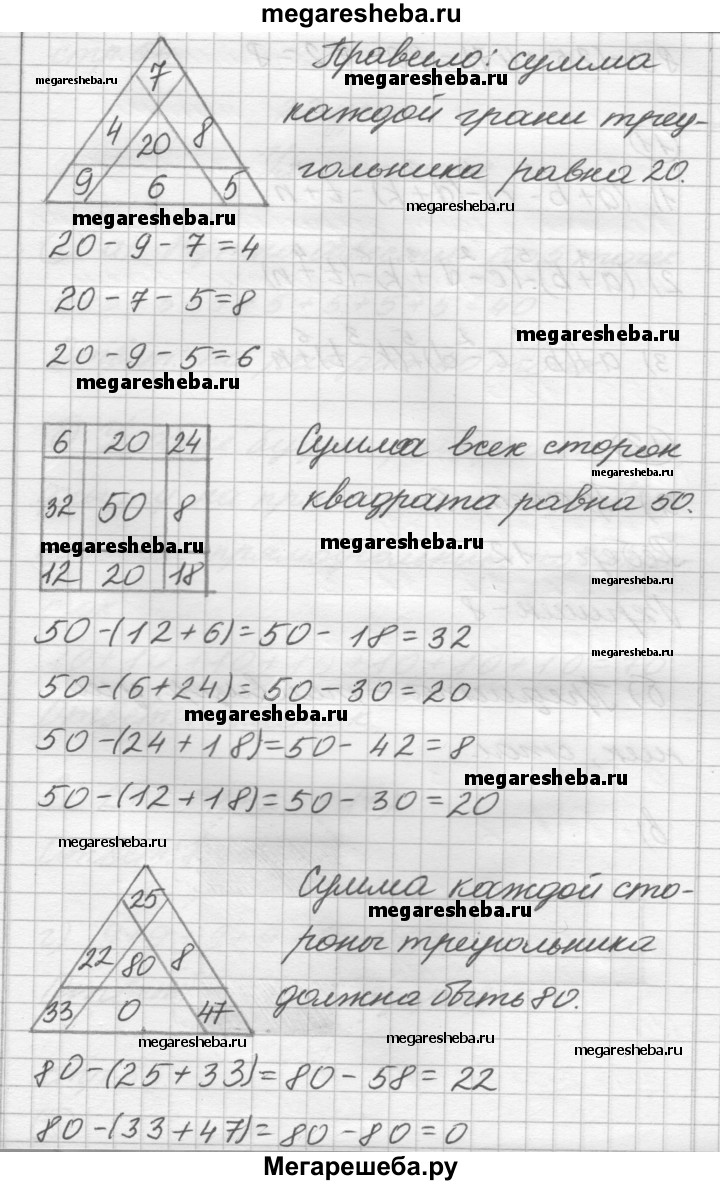 megaresheba.ru
7
Правило: сумма
megaresheba.ru
megaresheba.ru
каждой грани треу-
4 20 8
угольника равна 20.
9 6 5
megaresheba.ru
megaresheba.ru
20 - 9 - 7 = 4
20 - 7 - 5 = 8
megaresheba.ru
20 - 9 - 5 = 6
megaresheba.ru
6 20 24
Сумма всех сторон
megaresheba.ru
32 50 8
квадрата равна 50.
megaresheba.ru
megaresheba.ru
12 20 18
megaresheba.ru
50 - (12 + 6) = 50 - 18 = 32
megaresheba.ru
50 - (6 + 24) = 50 - 30 = 20
megaresheba.ru
50 - (24 + 18) = 50 - 42 = 8
megaresheba.ru
50 - (12 + 18) = 50 - 30 = 20
megaresheba.ru
25
Сумма каждой сто-
megaresheba.ru
22 80 8
роны треугольника
33 0 47
должна быть 80.
megaresheba.ru
megaresheba.ru
megaresheba.ru
80 - (25 + 33) = 80 - 58 = 22
80 - (33 + 47) = 80 - 80 = 0
Мегарешеба.ру